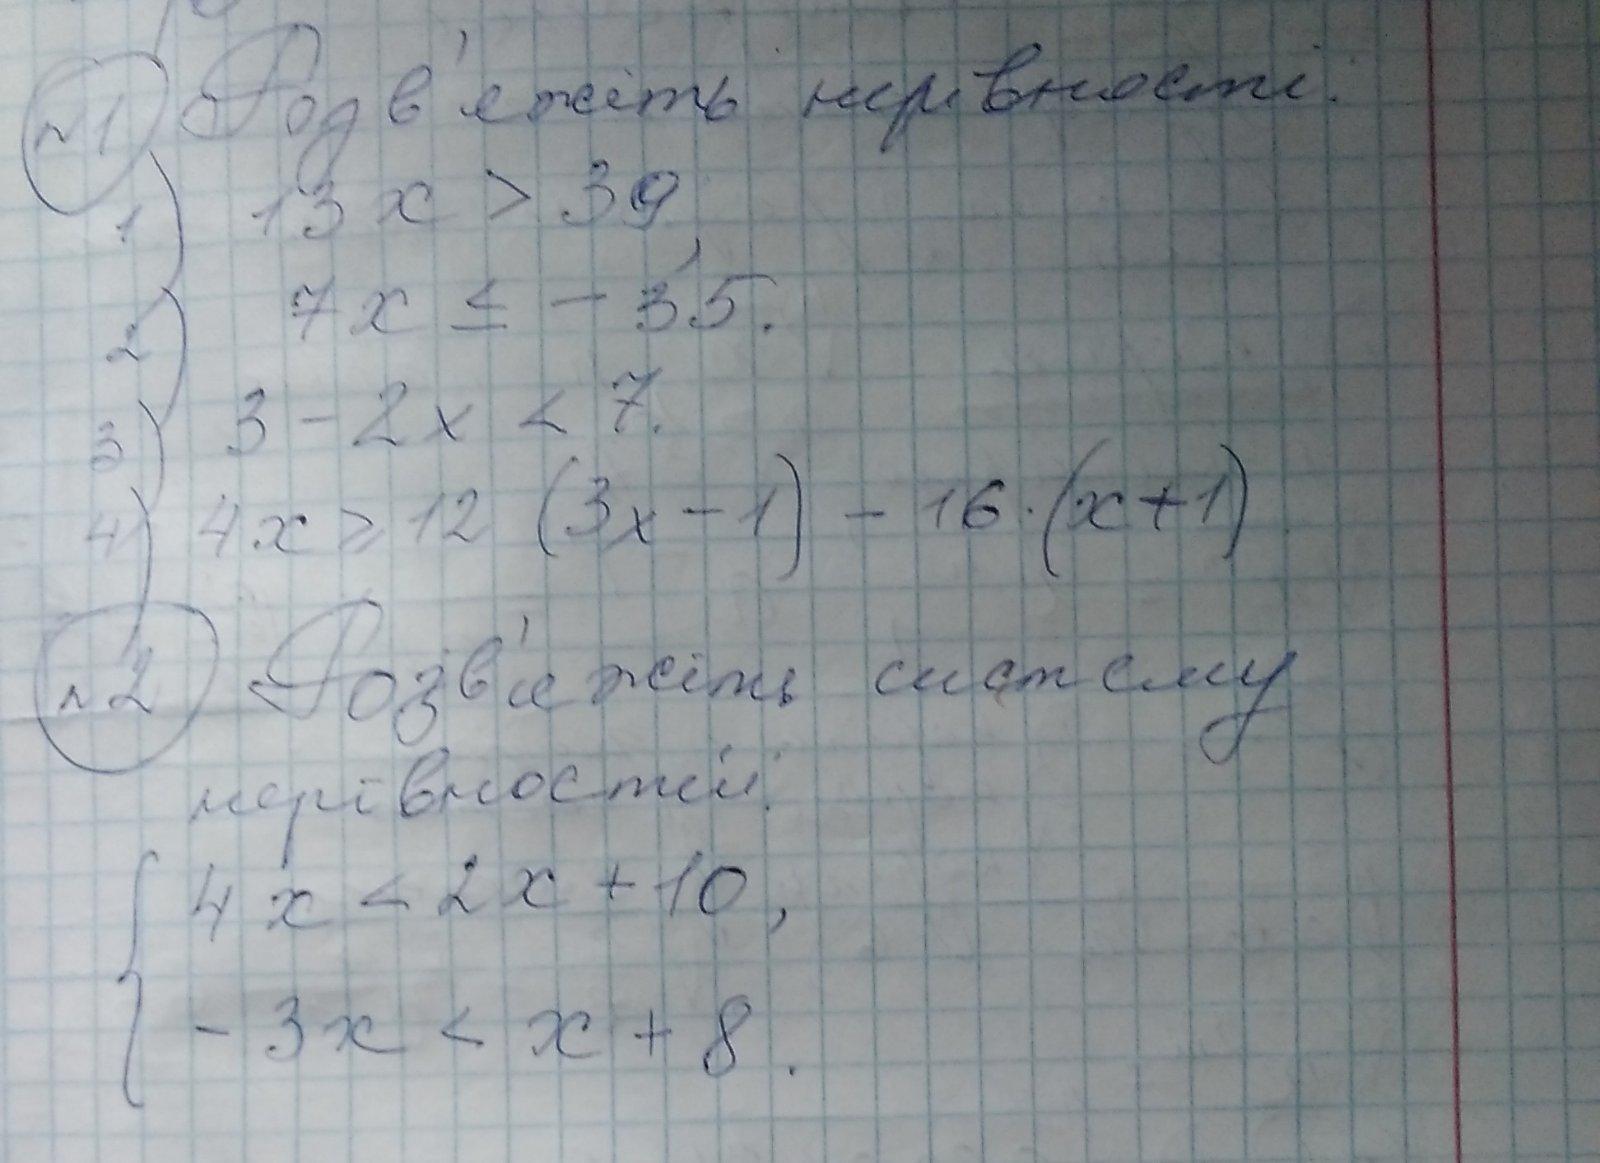 №1 Розв'яжіть нерівності:
1) 13x > 39,
2) 7x ≤ - 35.
3) 3 - 2x < 7.
4) 4x ≥ 12 (3x - 1) - 16·(x + 1)
№2 Розв'яжіть систему
нерівностей:
{ 4x < 2x + 10,
- 3x < x + 8.